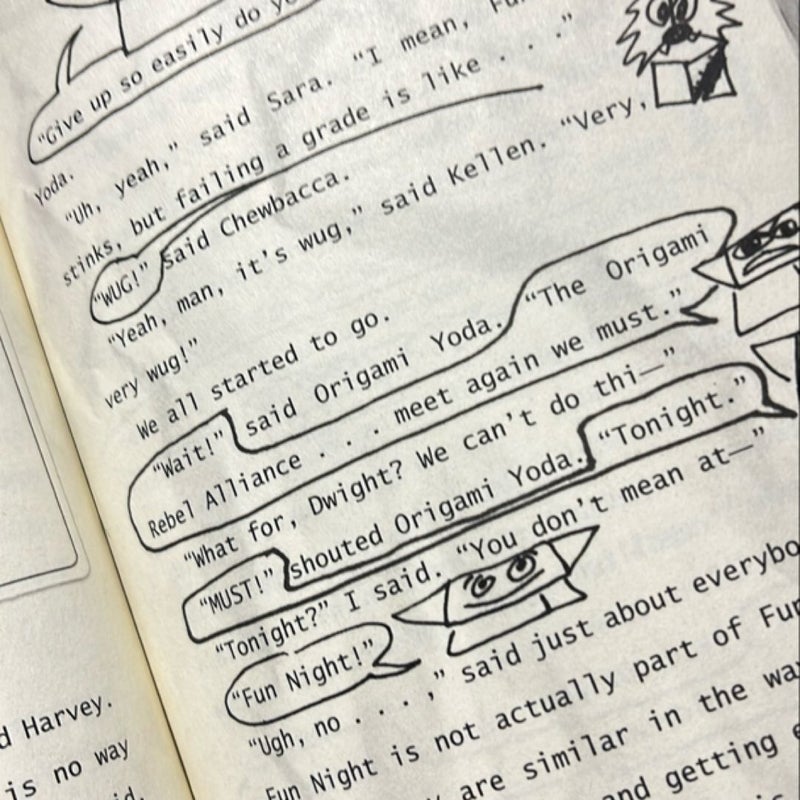 "Give up so easily do
Yoda.
"Uh, yeah," said Sara. "I mean,
stinks, but failing a grade is like . . ."
"WUG!" said Chewbacca.
"Yeah, man, it's wug," said Kellen. "Very,
very wug!"
We all started to go.
"Wait!" said Origami Yoda. "The Origami
Rebel Alliance . . . meet again we must."
"What for, Dwight? We can't do thi—"
"MUST!" shouted Origami Yoda. "Tonight."
"Tonight?" I said. "You don't mean at—"
"Fun Night!"
"Ugh, no . . . ," said just about everybo
Fun Night is not actually part of Fun
are similar in the way
and getting
d Harvey.
is no way